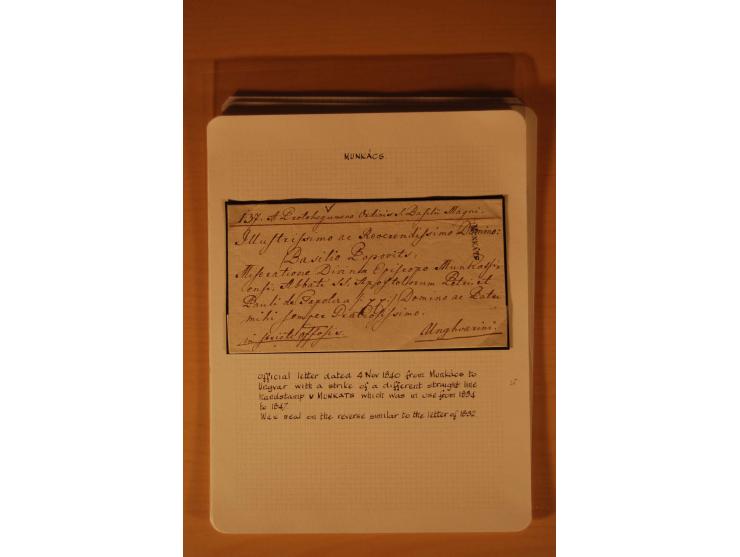 MUNKÁCS
137. A Protohegumeno Ordinis S. Basilii Magni.
Illustrissimo ac Reverendissimo Domino:
Basilio Popovits,
MUNKATS
Miseratione Divina Episcopo Munkatsi-
ensi, Abbati SS. Apostolorum Petri, et
Pauli de Tapolcza Domino ac Patri
mihi semper Gratiosissimo.
Unghvarini.
Official letter dated 4 Nov 1840 from Munkács to
Ungvar with a strike of a different straight line
handstamp v MUNKATS which was in use from 1834
to 1847
Wax seal on the reverse similar to the letter of 1832